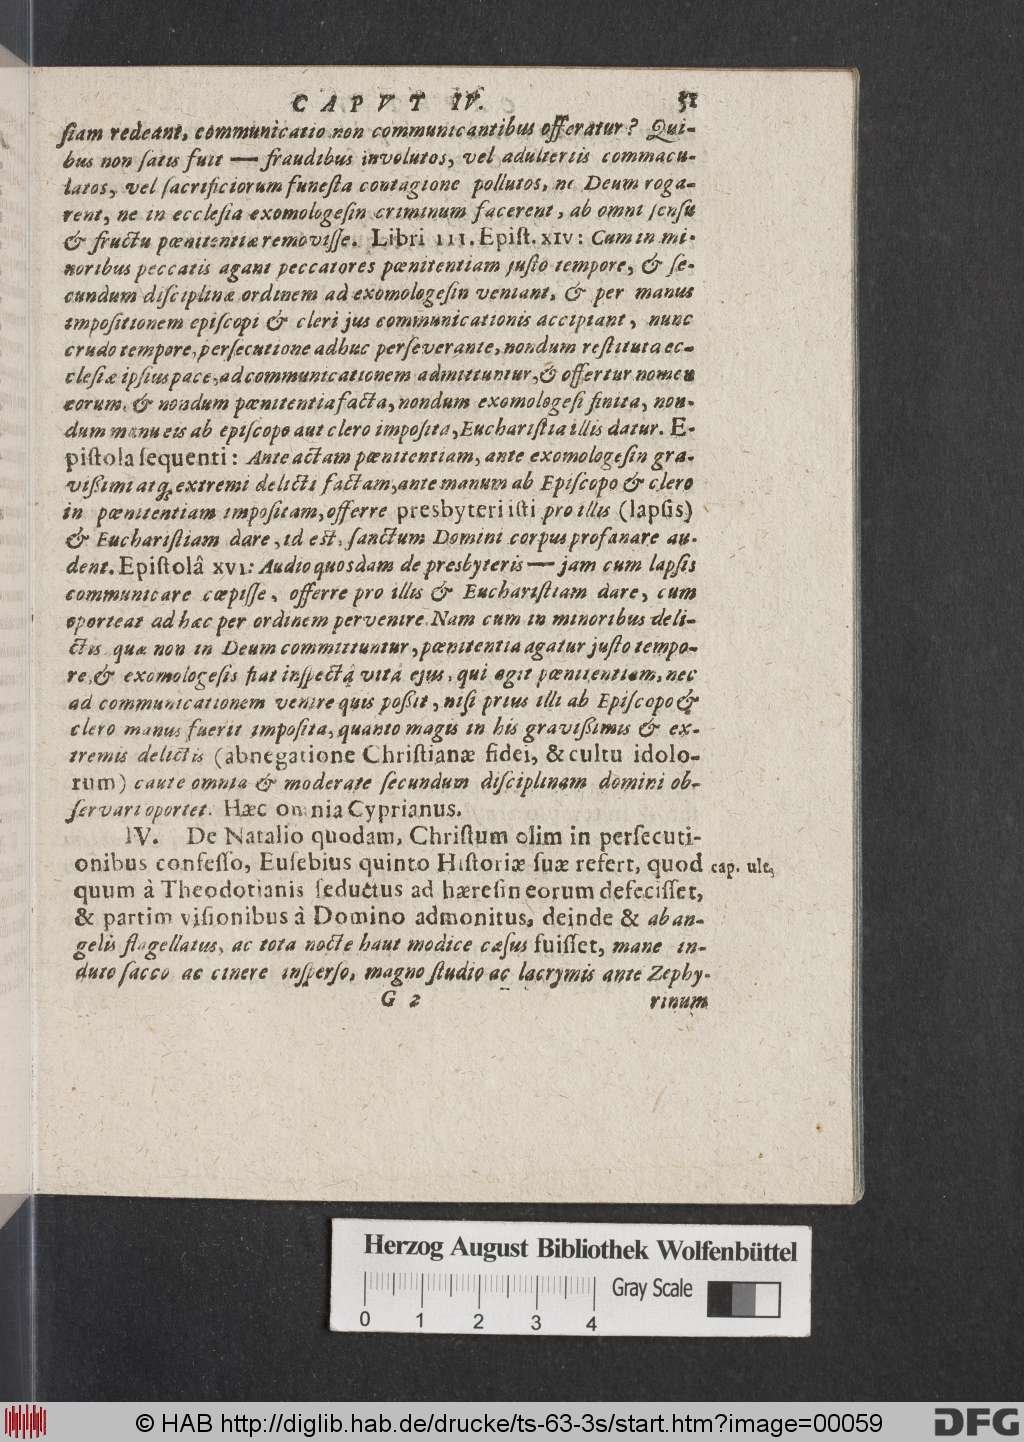 CAPVT IV. 51
ſiam redeant, communicatio non communicantibus offeratur? Qui-
bus non ſatis fuit — fraudibus involutos, vel adulteriis commacu-
latos, vel ſacrificiorum funeſta contagione pollutos, ne Deum roga-
rent, ne in eccleſia exomologeſin criminum facerent, ab omni ſenſu
& fructu pœnitentiæ removiſſe. Libri III. Epiſt. XIV: Cum in mi-
noribus peccatis agant peccatores pœnitentiam juſto tempore, & ſe-
cundum diſciplinæ ordinem ad exomologeſin veniant, & per manus
impoſitionem epiſcopi & cleri jus communicationis accipiant, nunc
crudo tempore, perſecutione adhuc perſeverante, nondum reſtituta ec-
cleſiæ ipſius pace, ad communicationem admittuntur, & offertur nomen
eorum, & nondum pœnitentia facta, nondum exomologeſi finita, non-
dum manu eis ab epiſcopo aut clero impoſita, Euchariſtia illis datur. E-
piſtola ſequenti: Ante actam pœnitentiam, ante exomologeſin gra-
vißimi atq; extremi delicti factam, ante manum ab Epiſcopo & clero
in pœnitentiam impoſitam, offerre presbyteri iſti pro illis (lapſis)
& Euchariſtiam dare, id eſt, ſanctum Domini corpus profanare au-
dent. Epiſtolâ XVI: Audio quosdam de presbyteris — jam cum lapſis
communicare cœpiſſe, offerre pro illis & Euchariſtiam dare, cum
oporteat ad hæc per ordinem pervenire. Nam cum in minoribus deli-
ctis quæ non in Deum committuntur, pœnitentia agatur juſto tempo-
re, & exomologeſis fiat inſpectâ vitâ ejus, qui agit pœnitentiam, nec
ad communicationem venire quis poßit, niſi prius illi ab Epiſcopo &
clero manus fuerit impoſita, quanto magis in his gravißimis & ex-
tremis delictis (abnegatione Chriſtianæ fidei, & cultu idolo-
rum) caute omnia & moderate ſecundum diſciplinam domini ob-
ſervari oportet. Hæc omnia Cyprianus.
IV. De Natalio quodam, Chriſtum olim in perſecuti-
onibus confeſſo, Euſebius quinto Hiſtoriæ ſuæ refert, quod cap. ult,
quum à Theodotianis ſeductus ad hæreſin eorum defeciſſet,
& partim viſionibus à Domino admonitus, deinde & ab an-
gelis flagellatus, ac tota nocte haut modice cæſus fuiſſet, mane in-
duto ſacco ac cinere inſperſo, magno ſtudio ac lacrymis ante Zephy-
G 2 rinum
Herzog August Bibliothek Wolfenbüttel
Gray Scale
0 1 2 3 4
© HAB http://diglib.hab.de/drucke/ts-63-3s/start.htm?image=00059
DFG